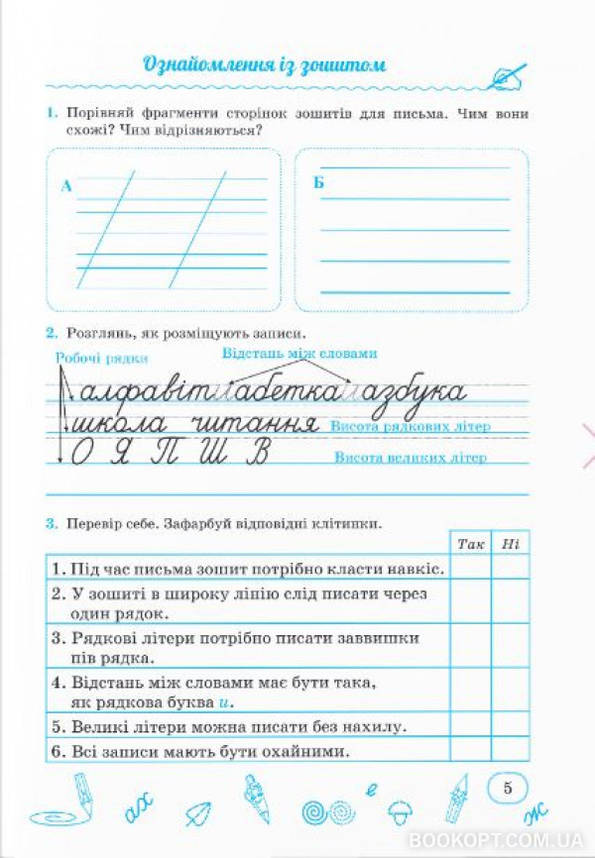 Ознайомлення із зошитом
1. Порівняй фрагменти сторінок зошитів для письма. Чим вони
схожі? Чим відрізняються?
А
Б
2. Розглянь, як розміщують записи.
Робочі рядки
Відстань між словами
алфавіт и абетка и азбука
школа читання Висота рядкових літер
О Я П Ш В Висота великих літер
3. Перевір себе. Зафарбуй відповідні клітинки.
Так Ні
1. Під час письма зошит потрібно класти навкіс.
2. У зошиті в широку лінію слід писати через
один рядок.
3. Рядкові літери потрібно писати заввишки
пів рядка.
4. Відстань між словами має бути така,
як рядкова буква и.
5. Великі літери можна писати без нахилу.
6. Всі записи мають бути охайними.
ах
е
ж
5
BOOKOPT.COM.UA